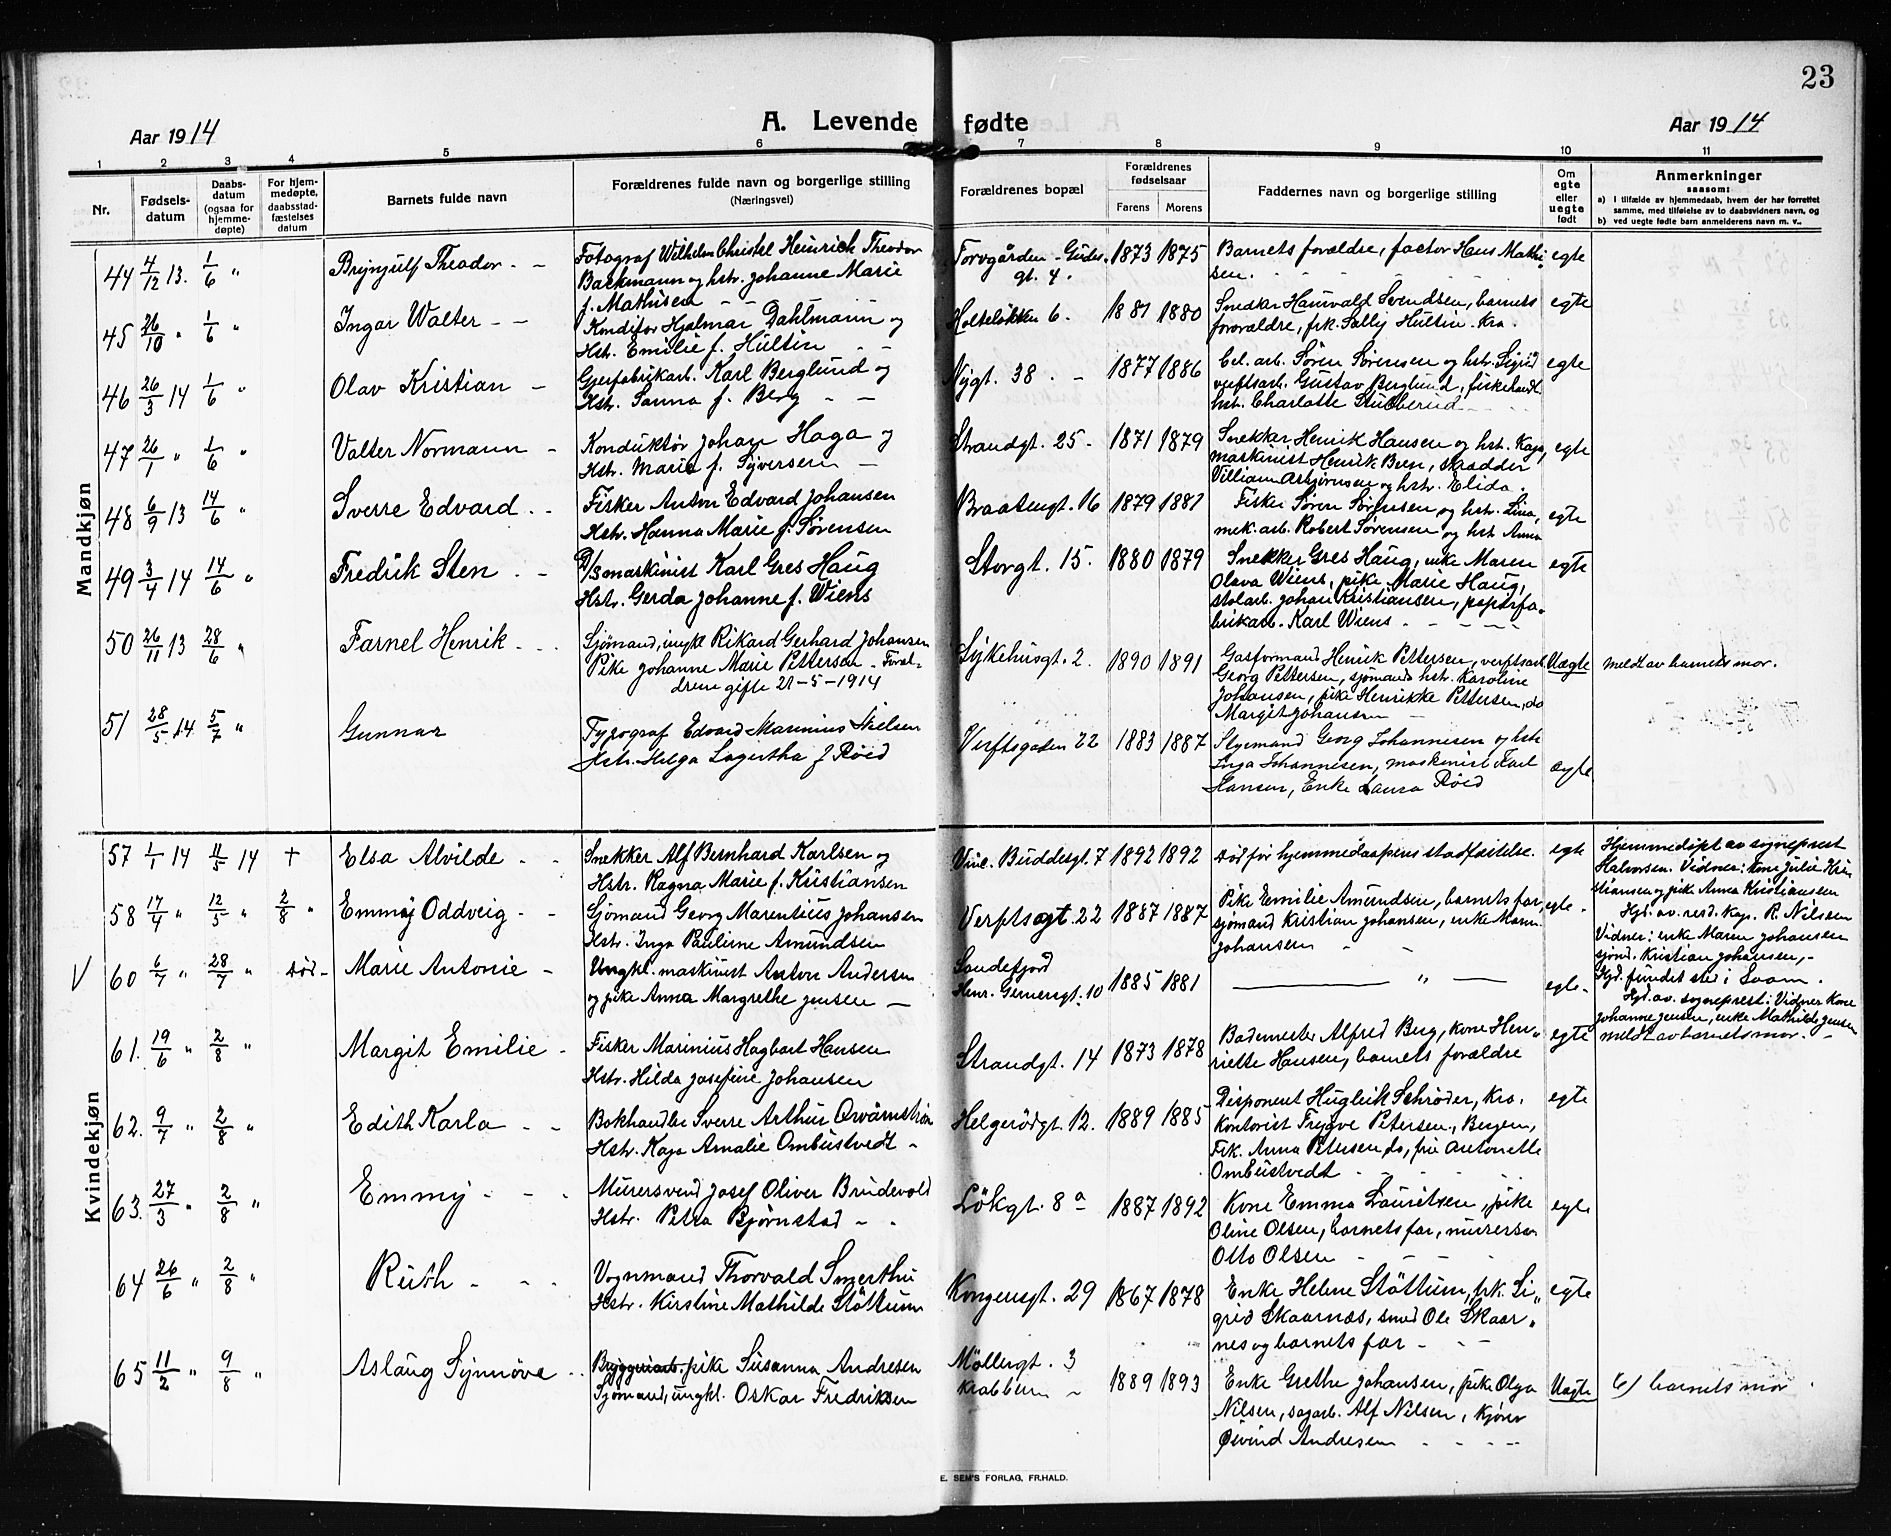 23
Aar 1914
A. Levende fødte
Aar 1914
1 2 3 4 5 6 7 8 9 10 11
Nr.
Fødsels-
datum
Daabs-
datum
(ogsaa for
hjemme-
døpte)
For hjem-
medøpte,
daabsstad-
fæstelses
datum
Barnets fulde navn
Forældrenes fulde navn og borgerlige stilling
(Næringsvei)
Forældrenes bopæl
Forældrenes
fødselsaar
Farens Morens
Faddernes navn og borgerlige stilling
Om
egte
eller
uegte
født
Anmerkninger
saasom:
a) I tilfælde av hjemmedaab, hvem der har forrettet
samme, med tilføielse av to daabsvidners navn, og
b) ved uegte fødte barn anmelderens navn m. v..
Mandkjøn
44 4/12 13. 1/6 "
Brynjulf Theodor - -
Fotograf Wilhelm Christel Heinrich Theodor
Backmann og hstr. Johanne Marie
f. Mathisen - -
Torvgården - Gudes
gt. 4.
1873 1875
Barnets forældre, factor Hans Mathi
sen.
egte
45 26/10 " 1/6 "
Ingar Walter - -
Konditor Hjalmar Dahlmann og
Hstr. Emilie f. Hultin - -
Holteløkken 6.
1881 1880
Snedker Haurvald Svendsen, barnets
forældre, frk. Sally Hultin. Kra.
egte
46 26/3 14 1/6 "
Olav Kristian -
Gjerfabrikarb. Karl Berglund og
Hstr. Sanna f. Berg - -
Nygt. 38. -
1877 1886
Cel. arb. Søren Sørensen og hst. Sigrid
verftsarb. Gustav Berglund, fiskehandl.
hst. Charlotte Stubberud
egte
47 26/1 " 1/6 "
Valter Normann -
Konduktør Johan Haga og
Hstr. Marie f. Syversen -
Strandgt. 25 -
1871 1879
Snekker Henrik Hansen og hst. Kaja,
maskinist Henrik Been, skradder
Villiam Asbjørnsen og hst. Elida.
egte
48 6/9 13 14/6 "
Sverre Edvard - -
Fisker Anton Edvard Johansen
Hstr. Hanna Marie f. Sørensen
Braatengt. 16
1879 1881
Fisker Søren Sørensen og hst. Lina,
mek. arb. Robert Sørensen og hst Anna
egte
49 3/4 14 14/6 "
Fredrik Sten - -
D/S maskinist Karl Gres Haug
Hstr. Gerda Johanne f. Wiens
Storgt. 15.
1880 1879
Snekker Gres Haug, enke Maren
Olava Wiens, pike Marie Haug,
stolarb. Johan Kristiansen, papirfa-
brikarb. Karl Wiens - - - -
egte
50 26/11 13 28/6 "
Farnel Henrik - - -
Sjømand, ungkl Rikard Gerhard Johansen
Pike Johanne Marie Pettersen - Foræl-
drene gifte 21-5-1914
Sykehusgt. 2.
1890 1891
Gasformand Henrik Pettersen, verftsarb.
Georg Pettersen, sjømands hst. Karoline
Johansen, pike Henrikke Pettersen, do
Margit Johansen -
Uægte
meldt av barnets mor.
51 28/5 14 5/7 "
Gunnar
Typograf Edvard Marinius Nielsen
Hstr. Helga Lagertha f Røed
Verftsgaden 22
1883 1887
Styrmand Georg Johannesen og hst
Inga Johannesen, maskinist Karl
Hansen, Enke Laura Røed
ægte
Kvindekjøn
57 1/1 14 11/5 14 +
Elsa Alvilde - -
Snekker Alf Bernhard Karlsen og
Hstr. Ragna Marie f. Kristiansen
Vinc. Buddesgt. 7
1892 1892
død før hjemmedaapens stadfæstelse.
egte
Hjemmedøpt av sogneprest
Halvorsen. Vidner: kone Julie Kris
tiansen og pike Anna Kristiansen
58 17/4 " 12/5 " 2/8 "
Emmy Oddveig - -
Sjømand Georg Marentius Johansen
Hstr. Inga Pauline Amundsen
Verftsgt. 22
1887 1887
Pike Emilie Amundsen, barnets far,
sjømand Kristian Johansen, enke Maren
Johansen - -
egte -
Hjd. av. res. kap. R. Nilssen
Vidner: enke Maren Johansen
sjømd. Kristian Johansen, -
V 60 6/7 " 28/7 " død -
Marie Antonie -
Ungkl. maskinist Anton Andersen
og pike Anna Margrethe Jensen -
Sandefjord
Henr. Gernersgt. 10
1885 1881
"
egte -
Hjd. fundet sted i Svam.
Hjd. av. sogneprest: Vidner Kone
Johanne Jensen, enke Mathilde Jensen
meldt av barnets mor. -
61. 19/6 " 2/8 "
Margit Emilie -
Fisker Marinius Hagbart Hansen
Hstr. Hilda Josefine Johansen
Strandgt. 14
1873 1878
Bademester Alfred Berg, kone Hen-
riette Hansen, barnets forældre
egte
62. 9/7 " 2/8 "
Edith Karla - -
Bokhandler Sverre Arthur Qvarnstrøm
Hstr. Kaja Amalie Ombustvedt -
Helgerödgt. 12.
1889 1885
Disponent Hugleik Schrøder, Kra.
Kontorist Trygve Petersen, Bergen,
Frk. Anna Petersen do, frk Antonette
Ombustvedt - - - -
egte
63. 27/3 " 2/8 "
Emmy - - -
Murersvend Josef Oliver Brudevold
Hstr. Petra Bjørnstad - -
Lökgt. 8a
1887 1892
Kone Emma Lauritsen, pike
Oline Olsen, barnets far, murersv.
Otto Olsen - - - -
egte
64 26/6 " 2/8 "
Ruth - - -
Vognmand Thorvald Smerthu
Hstr. Kirstine Mathilde Støttum
Kongensgt. 29
1867 1878
Enke Helene Støttum, frk. Si-
grid Skaarnæs, smed Ole Skaar-
nes og barnets far - - -
egte
65 11/2 " 9/8 "
Aslaug Synnøve - -
Bryggeriarb. pike Susanna Andresen
Sjømand, ungkl. Oskar Fredriksen
Möllergt. 3
Krabben -
1889 1893
Enke Grethe Johansen, pike Olga
Nilsen, sagarb. Alf Nilsen, Kjører
Øivind Andresen - - - -
Uægte
b) barnets mor.
E. SEM'S FORLAG, FR.HALD.